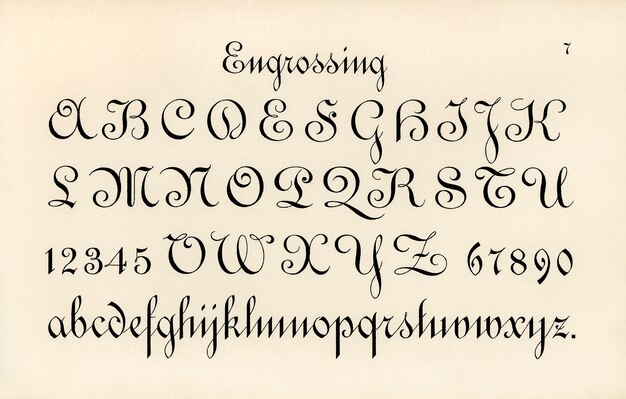 Engrossing 7
A B C D E F G H I J K
L M N O P Q R S T U
1 2 3 4 5 V W X Y Z 6 7 8 9 0
abcdefghijklmnopqrstuvwxyz.